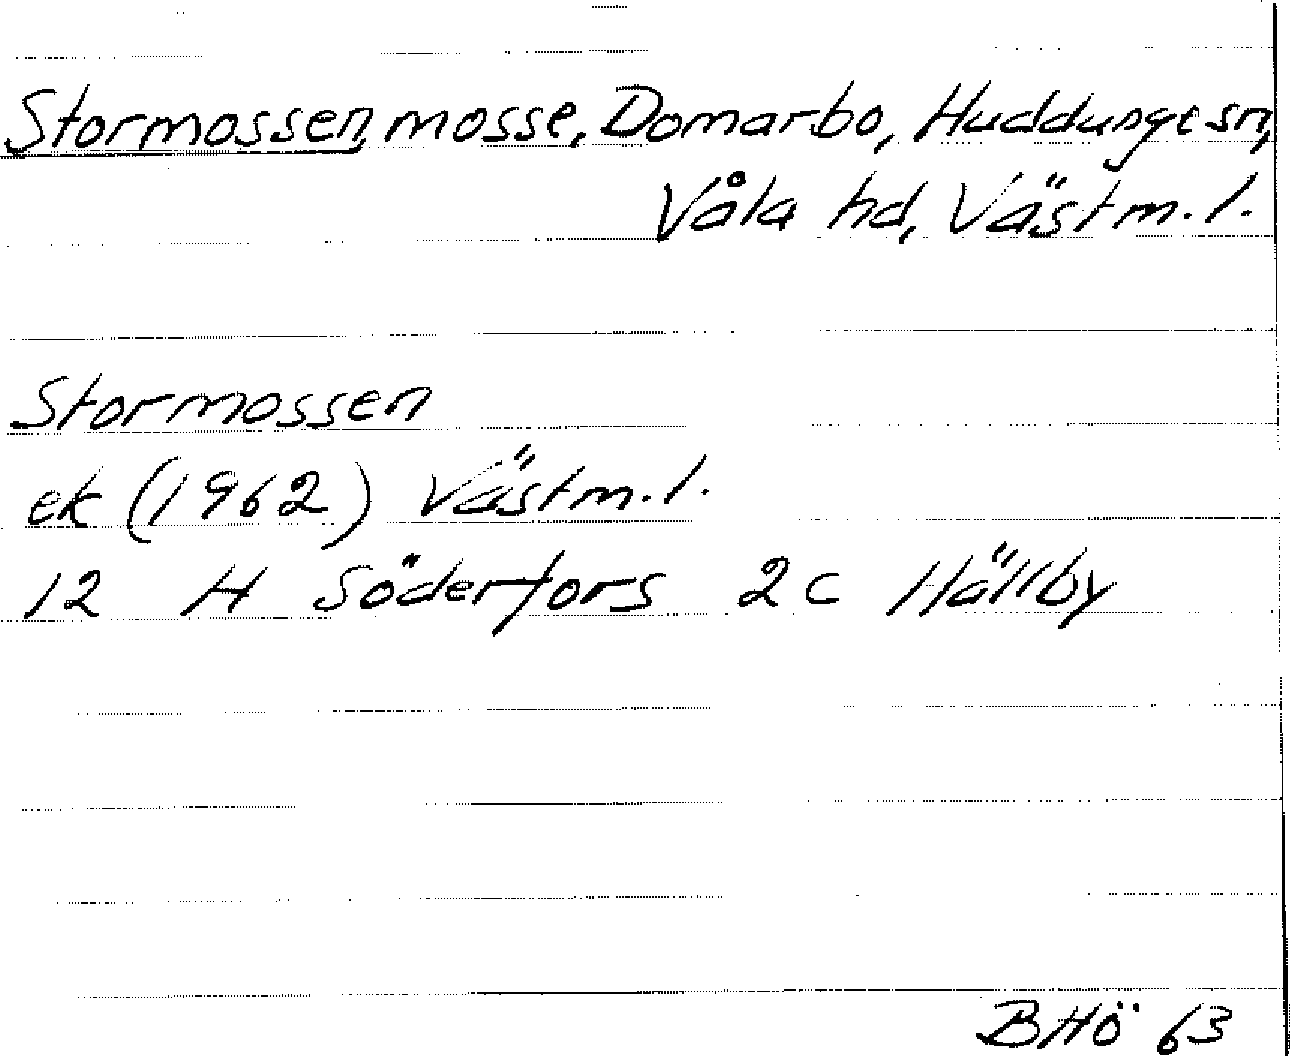 Stormossen, mosse, Domarbo, Huddunge sn,
Våla hd, Västm. l.
Stormossen
ek (1962) Västm. l.
12 H Söderfors 2 c Hällby
BHö 63